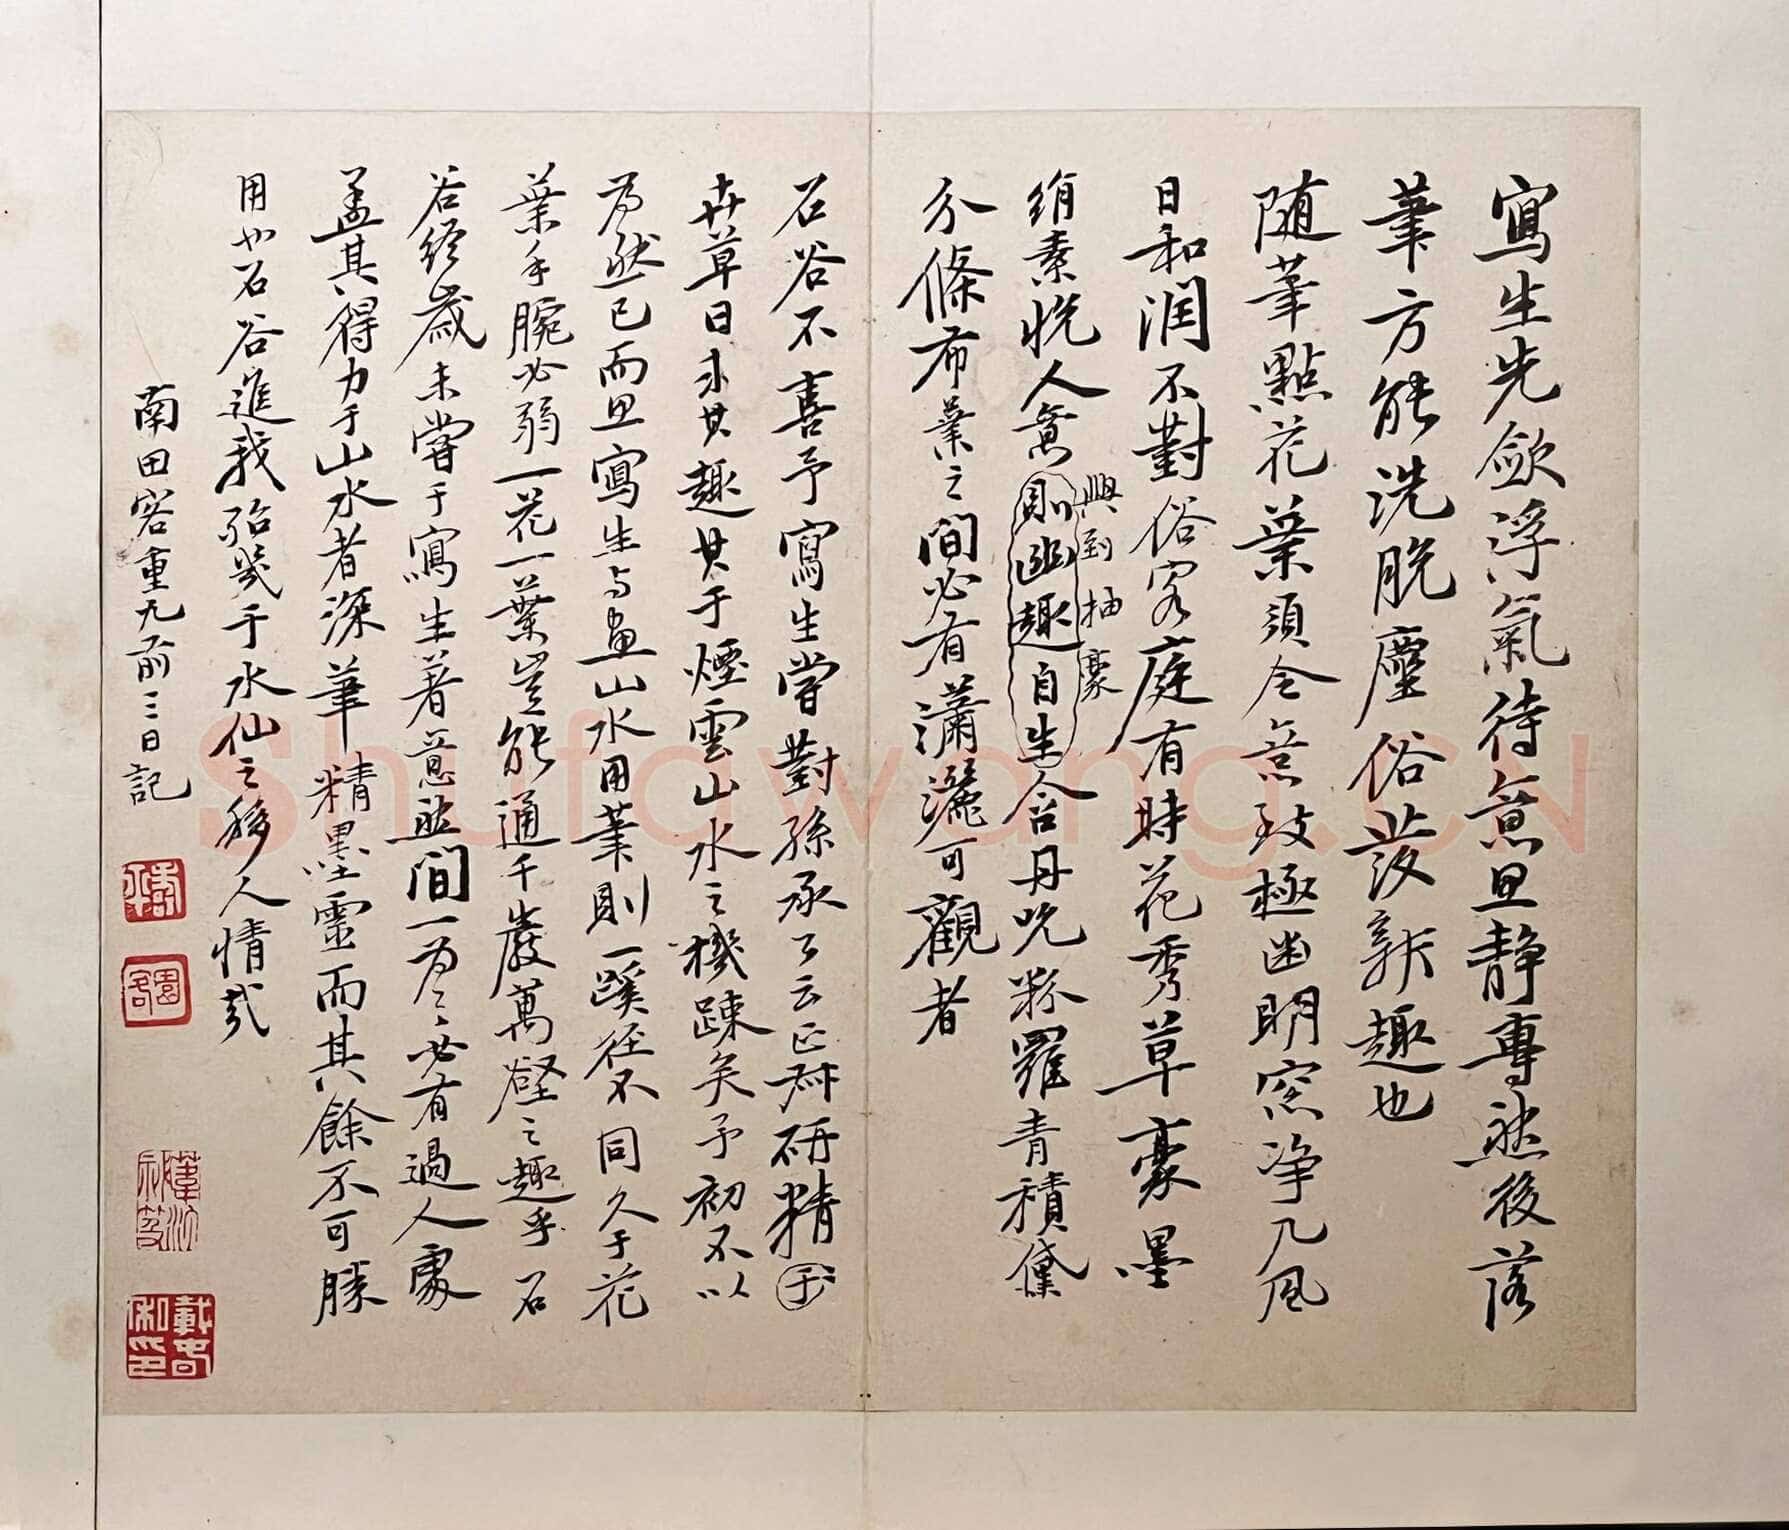 寫生先歛浮氣待意思静專然後落
筆方能洗脱塵俗發新趣也
随筆點花葉須令意致極幽明窓净几風
日和润不對俗客庭有時花秀草豪墨
絹素恱人意則幽趣自生含丹吮粉羅青積黛
興到抽豪
分條布葉之間必有瀟灑可觀者
石谷不喜予寫生嘗對孫承公云正叔研精于
卉草日求其趣其于煙雲山水之機踈矣予初不以
為然已而思寫生与畫山水用筆則一蹊径不同久于花
葉手腕必弱一花一葉豈能通千巖萬壑之趣乎石
谷終歳未嘗于寫生著意然間一为之必有過人處
盖其得力于山水者深筆精墨靈而其餘不可勝
用也石谷進我殆幾于水仙之移人情哉
南田客重九前三日記
園客
戴壽
shufawang.cn